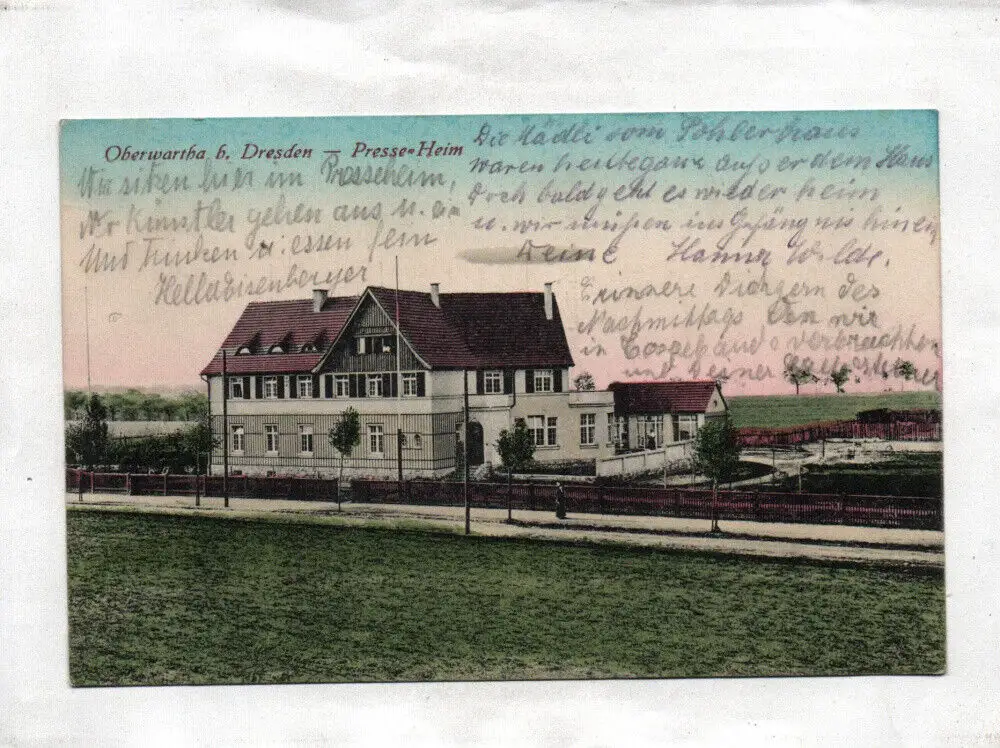 Oberwartha b. Dresden — Presse-Heim
Wir sitzen hier im Presseheim,
wo Künstler gehen aus u. ein
Und trinken u. essen fein
Hella
Die Mädli vom
waren heut ganz außer dem Haus
Doch bald geht es wieder heim
u. wir müßen ins Gefängnis hinein
Deine Hanna Wilde.
Erinnere Dich gern des
Nachmittags den wir
in verbrachten
und Deiner